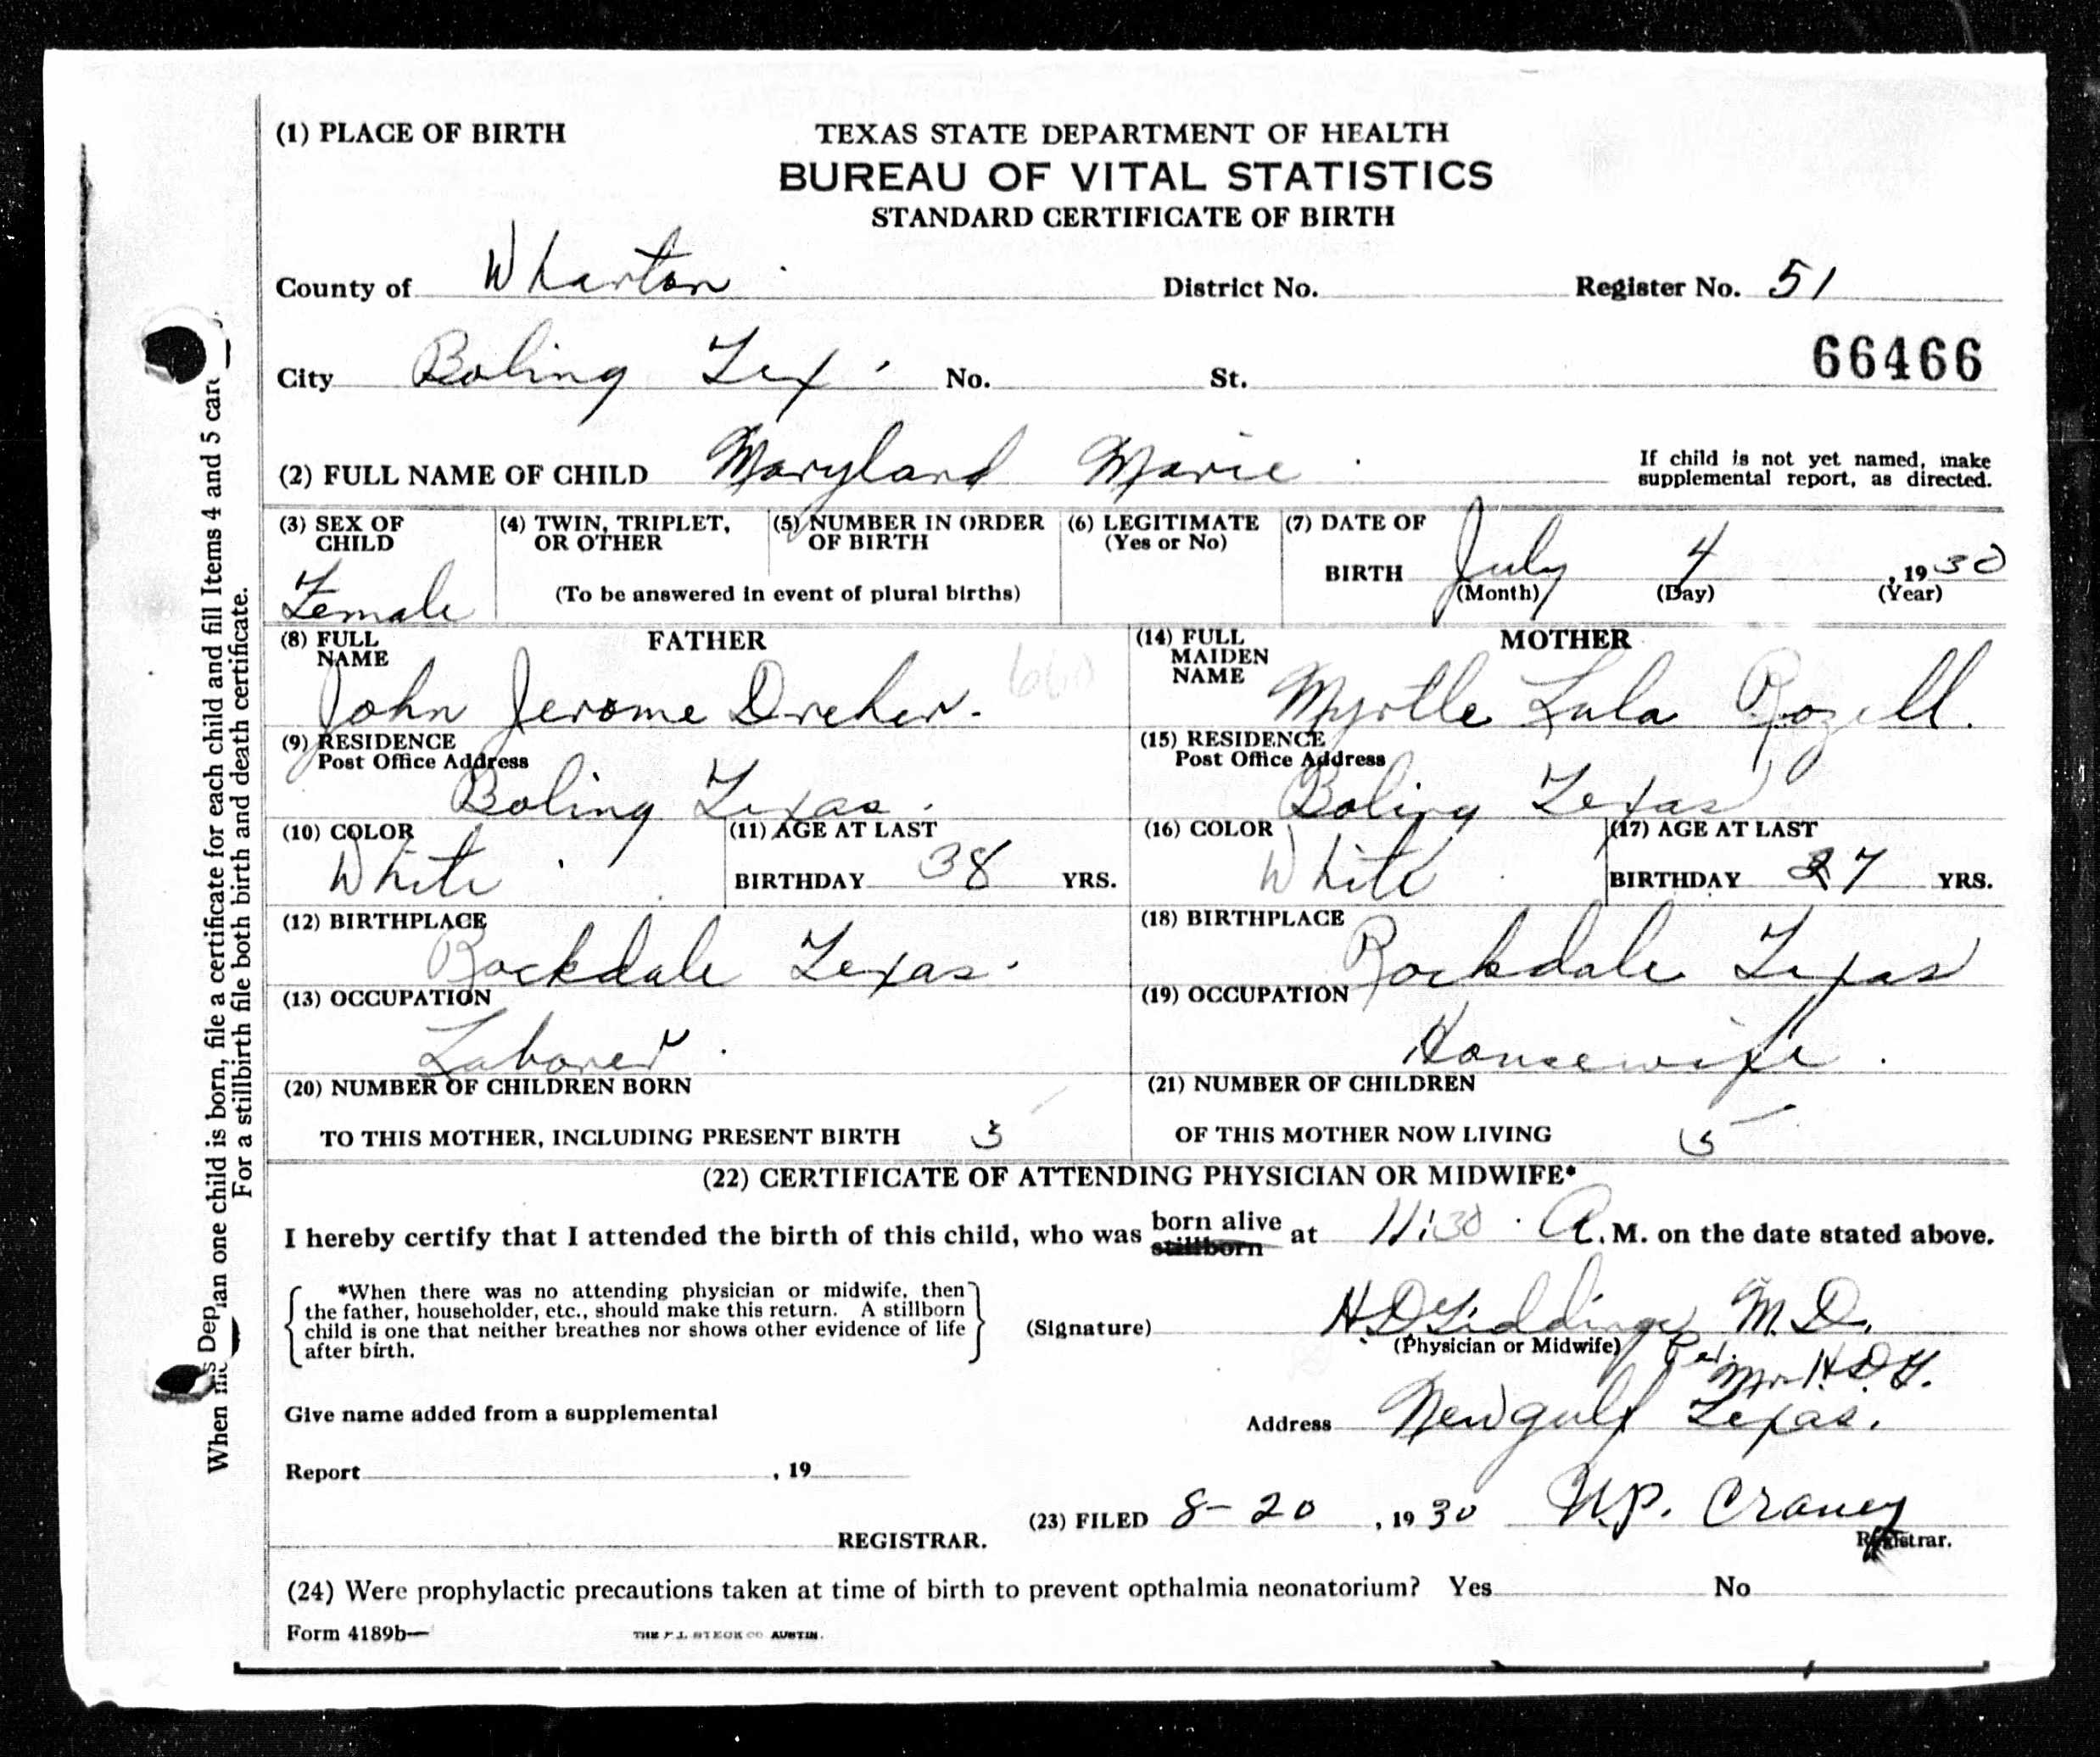 (1) PLACE OF BIRTH
TEXAS STATE DEPARTMENT OF HEALTH
BUREAU OF VITAL STATISTICS
STANDARD CERTIFICATE OF BIRTH
County of Wharton District No. Register No. 51
City Boling Tex No. St. 66466
(2) FULL NAME OF CHILD Maryland Marie
If child is not yet named, make
supplemental report, as directed.
(3) SEX OF CHILD Female
(4) TWIN, TRIPLET, OR OTHER
(5) NUMBER IN ORDER OF BIRTH
(To be answered in event of plural births)
(6) LEGITIMATE (Yes or No)
(7) DATE OF BIRTH July 4, 1930
(Month) (Day) (Year)
FATHER
(8) FULL NAME John Jerome Dreher.
(9) RESIDENCE Post Office Address Boling Texas.
(10) COLOR White
(11) AGE AT LAST BIRTHDAY 38 YRS.
(12) BIRTHPLACE Rockdale Texas.
(13) OCCUPATION Laborer.
MOTHER
(14) FULL MAIDEN NAME Myrtle Lula Rozell.
(15) RESIDENCE Post Office Address Boling Texas
(16) COLOR White
(17) AGE AT LAST BIRTHDAY 27 YRS.
(18) BIRTHPLACE Rockdale Texas
(19) OCCUPATION Housewife.
(20) NUMBER OF CHILDREN BORN
TO THIS MOTHER, INCLUDING PRESENT BIRTH 5
(21) NUMBER OF CHILDREN
OF THIS MOTHER NOW LIVING 5
(22) CERTIFICATE OF ATTENDING PHYSICIAN OR MIDWIFE*
I hereby certify that I attended the birth of this child, who was born alive stillborn at 11:30 A. M. on the date stated above.
*When there was no attending physician or midwife, then
the father, householder, etc., should make this return. A stillborn
child is one that neither breathes nor shows other evidence of life
after birth.
(Signature) H D Giddings M. D.
(Physician or Midwife) Per.
Mrs H. D. G.
Address Newgulf Texas.
Give name added from a supplemental
Report , 19
REGISTRAR.
(23) FILED 8-20, 1930 Craney
Registrar.
(24) Were prophylactic precautions taken at time of birth to prevent opthalmia neonatorium? Yes No
Form 4189b—
AUSTIN.
When more than one child is born, file a certificate for each child and fill Items 4 and 5
For a stillbirth file both birth and death certificate.